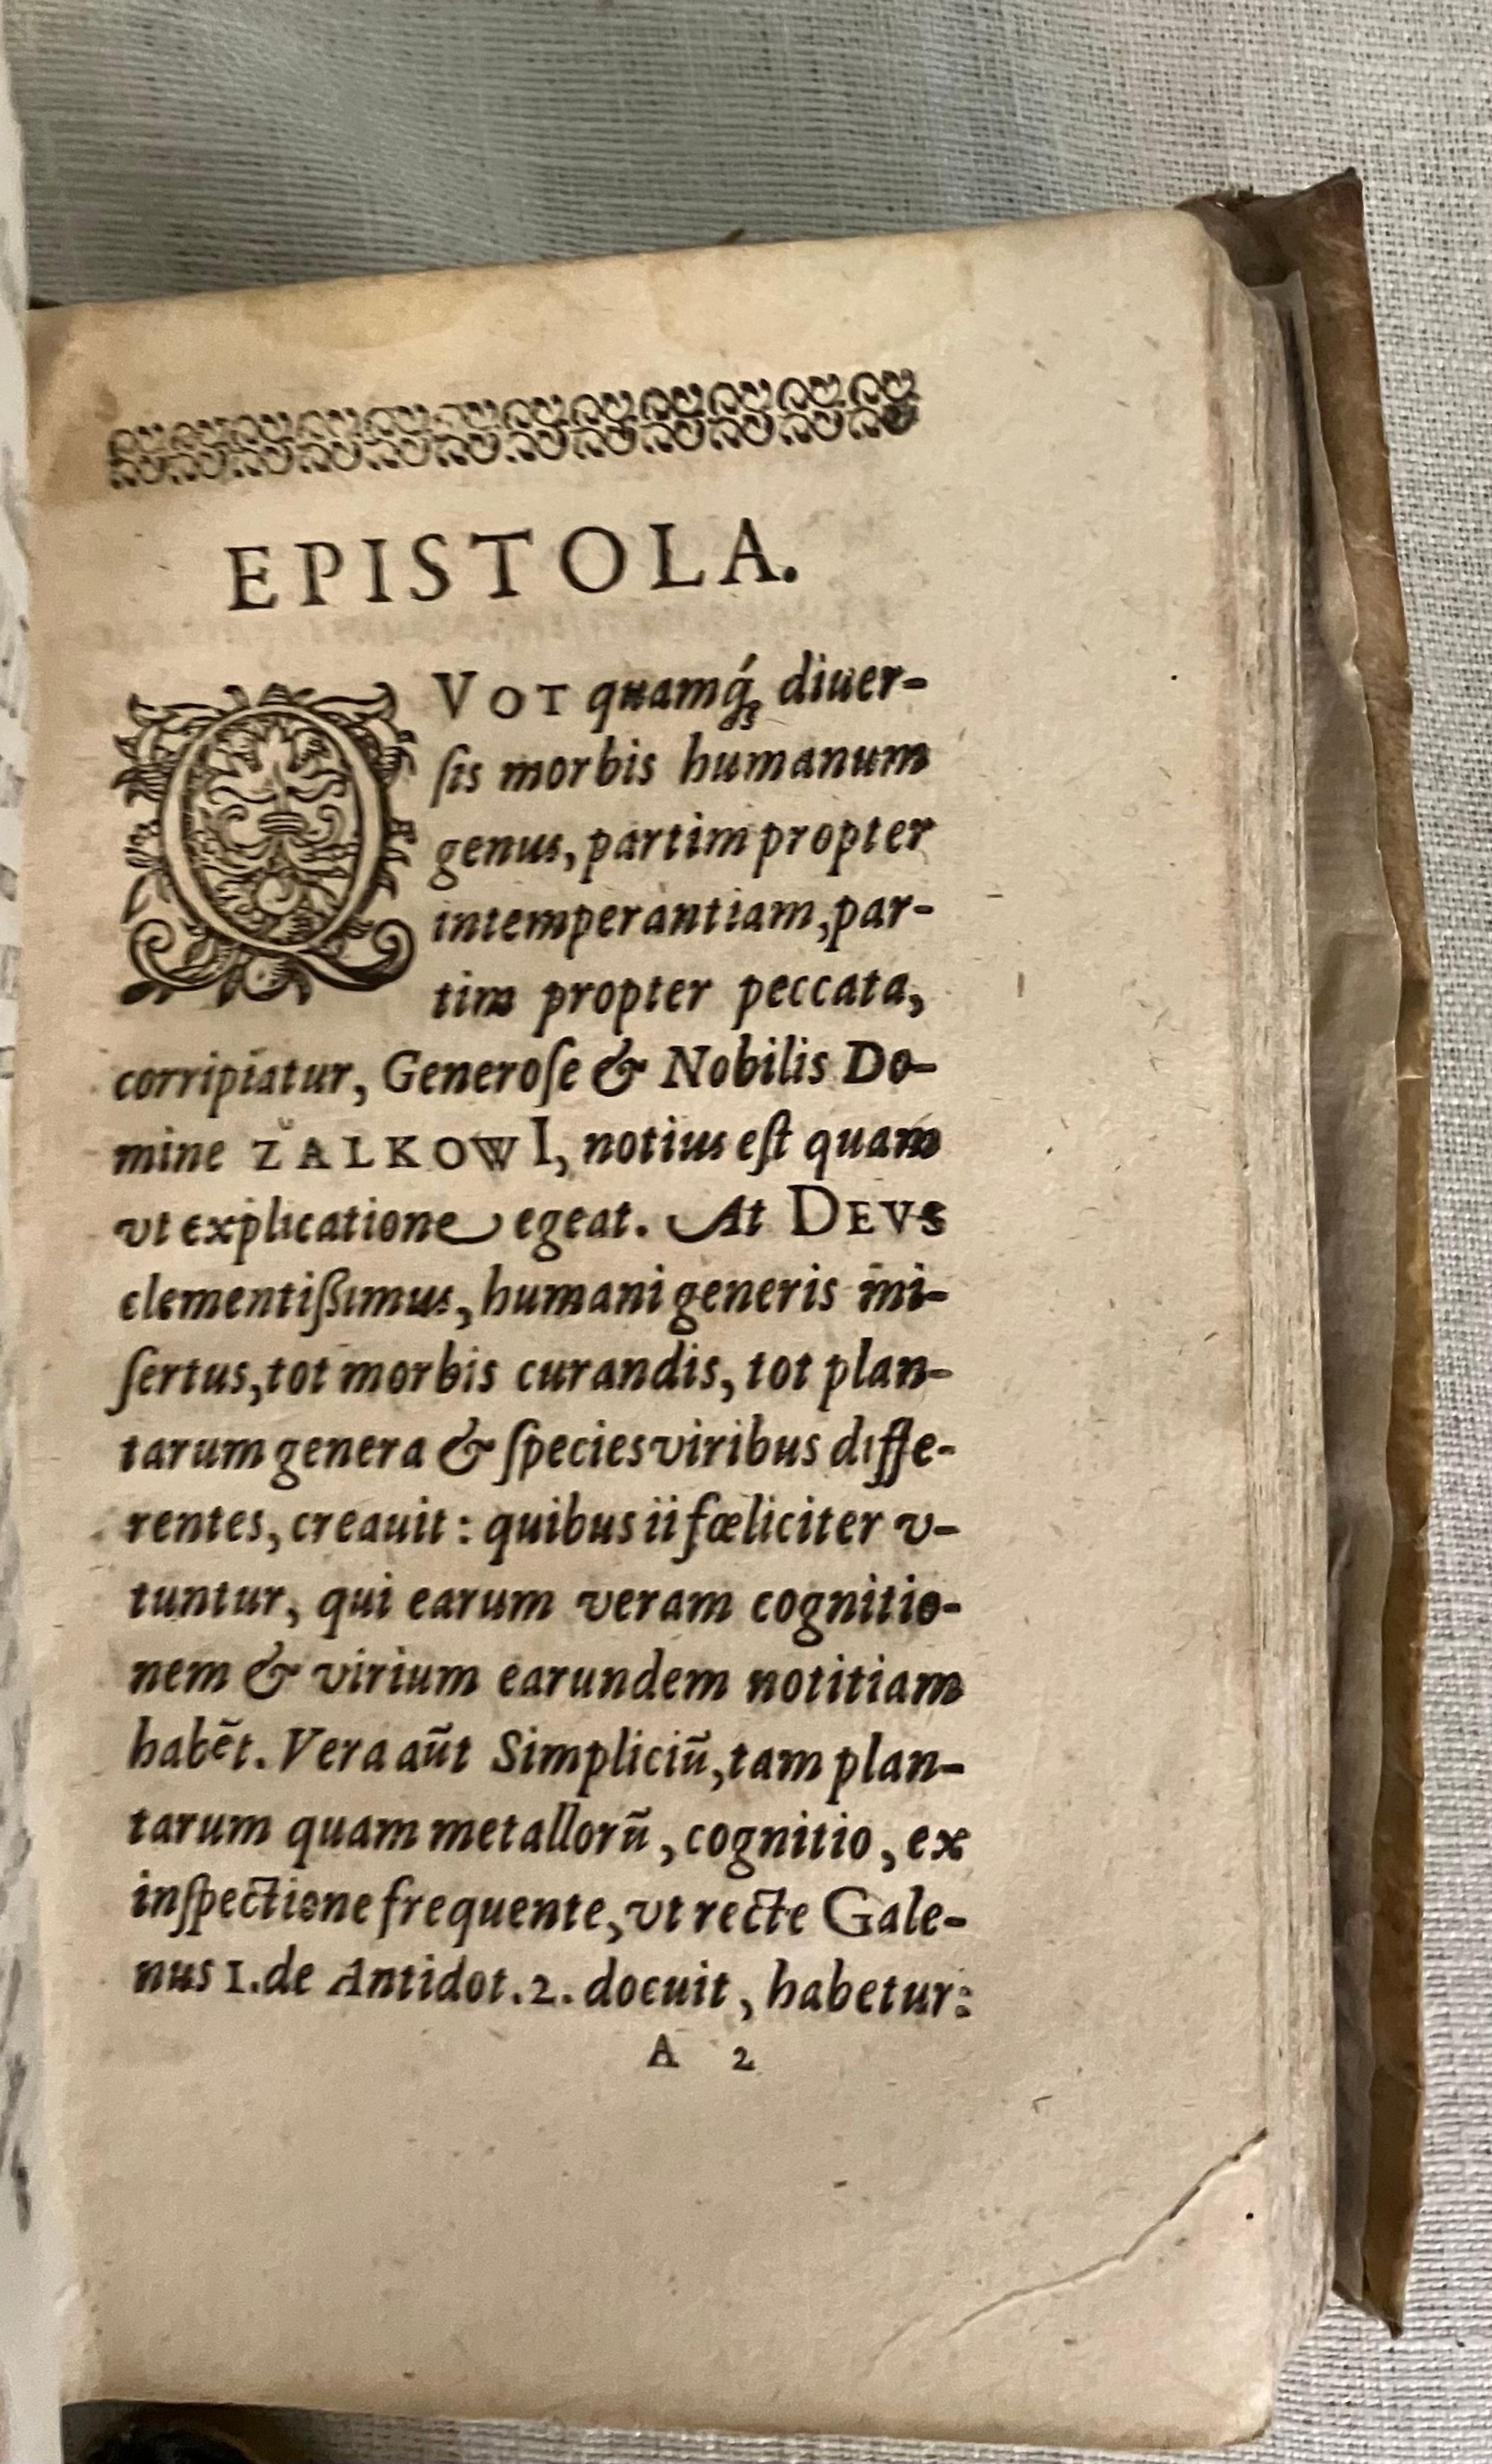 EPISTOLA.
QVOT quamq́; diuer-
ſis morbis humanum
genus, partim propter
intemperantiam, par-
tim propter peccata,
corripiatur, Generoſe & Nobilis Do-
mine ZALKOWI, notius eſt quam
vt explicatione egeat. At DEVS
clementiſſimus, humani generis mi-
ſertus, tot morbis curandis, tot plan-
tarum genera & ſpecies viribus diffe-
rentes, creauit: quibus ii fœliciter v-
tuntur, qui earum veram cognitio-
nem & virium earundem notitiam
habẽt. Vera aũt Simpliciũ, tam plan-
tarum quam metallorũ, cognitio, ex
inſpectione frequente, vt recte Gale-
nus 1. de Antidot. 2. docuit, habetur:
A 2